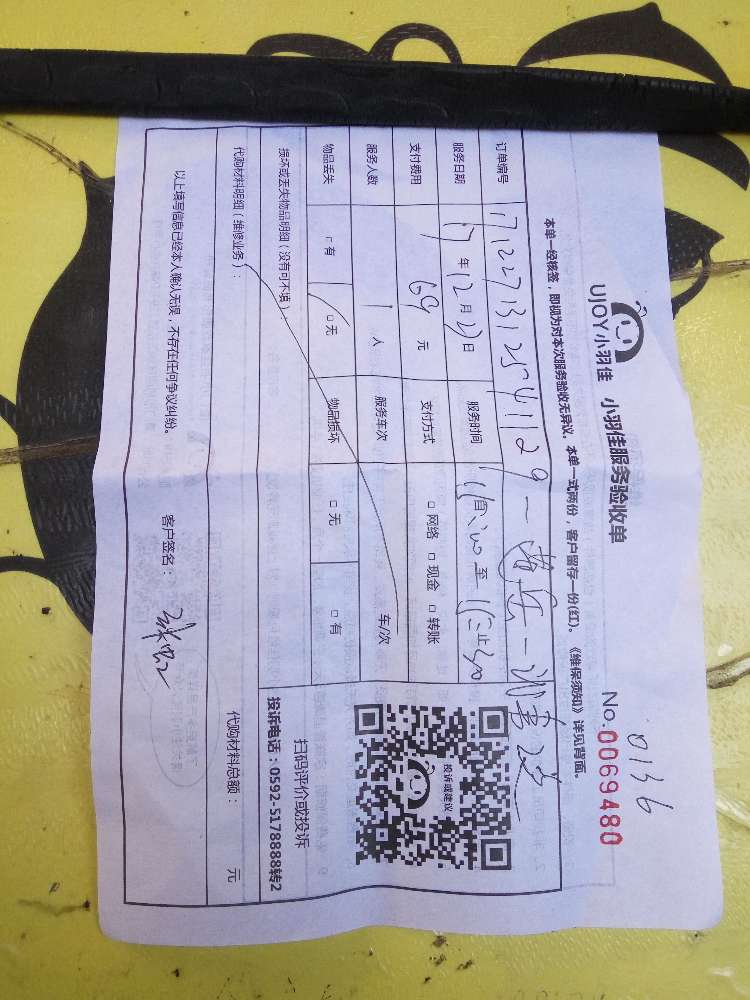 UJOY小羽佳 小羽佳服务验收单
0136
No.0069480
本单一经核签，即视为对本次服务验收无异议。本单一式两份，客户留存一份(红)。《维保须知》详见背面。
订单编号
服务日期 17年12月27日 服务时间 自 至 止
支付费用 69元 支付方式 □网络 □现金 □转账
服务人数 1人 服务车次 车/次
物品丢失 □有 □无 物品损坏 □无 □有
投诉或建议
扫码评价或投诉
投诉电话：0592-5178888转2
损坏或丢失物品明细（没有可不填）：
代购材料明细（维修业务）：
代购材料总额： 元
以上填写信息已经本人确认无误，不存在任何争议纠纷。 客户签名：